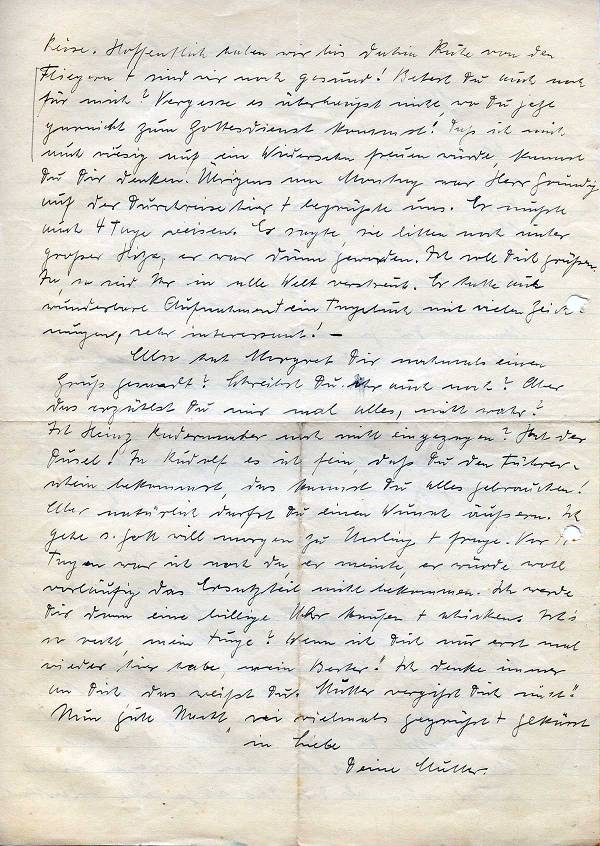 Reise. Hoffentlich haben wir bis dahin Ruhe von den
Fliegern + sind wir noch gesund! Betest Du auch noch
für mich? Vergesse es überhaupt nicht, wo Du jetzt
garnicht zum Gottesdienst kommst! Daß ich mich
auch riesig auf ein Wiedersehn freuen würde, kannst
Du Dir denken. Übrigens am Montag war Herr Gründig
auf der Durchreise hier + begrüßte uns. Er mußte
auch 4 Tage reisen. Er sagte, sie litten noch unter
großer Hitze, er war dünn geworden. Ich soll Dich grüßen.
Ja, so seid Ihr in alle Welt verstreut. Er hatte auch
wunderbare Aufnahmen + ein Tagebuch mit vielen Zeich-
nungen, sehr interessant! –
Also hat Margret Dir nochmals einen
Gruß gesandt? Schreibst Du ihr auch noch? Aber
das erzählst Du mir mal alles, nicht wahr?
Ist Heinz noch nicht eingezogen? Hat der
Dusel! Ja Rudolf es ist fein, daß Du den Führer-
schein bekommst, das kannst Du alles gebrauchen.
Aber natürlich darfst Du einen Wunsch äußern. Ich
gehe s. Gott will morgen zu + frage. Vor
Tagen war ich noch da, er meinte, er würde wohl
vorläufig das Ersatzteil nicht bekommen. Ich werde
Dir dann eine billige Uhr kaufen + schicken. Ist's
so recht, mein Junge? Wenn ich Dich nur erst mal
wieder hier habe, mein Bester! Ich denke immer
an Dich das weißt Du. Mutter vergißt Dich nicht!
Nun gute Nacht, sei vielmals gegrüßt + geküsst
in Liebe
Deine Mutter.